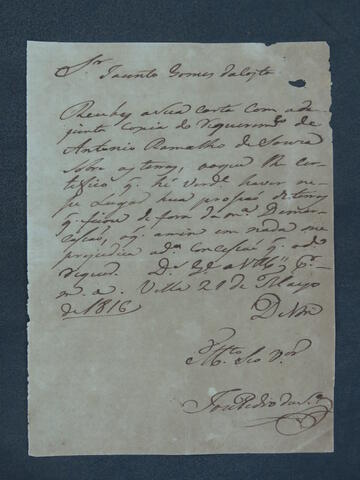 Sr. Jacinto Gomes da Costa
Recebi a sua carta com a de
junta Copia do Requerimto de
Antonio Ramalho de Souza
sobre as terras, ao que lhe cer
tefico q. he verde. haver ne
se Lugar hua porsaõ de terras
q. ficou de fora da ma. Demar
casaõ, q. a mim em nada me
prejudica a da. Concesaõ q. o do.
Ds. Ge. a Vm.
m. a. Villa 21 de Mayo
de 1816 De Vm
Mto
José Pedro da